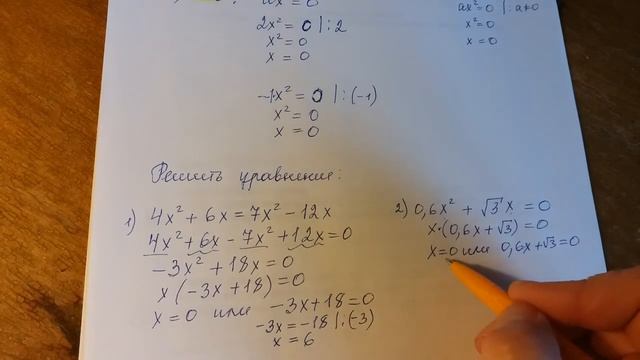 ax² = 0
2x² = 0 |:2
x² = 0
x = 0
ax² = 0 |: a≠0
x² = 0
x = 0
-1x² = 0 |:(-1)
x² = 0
x = 0
Решить уравнение:
1) 4x² + 6x = 7x² - 12x
4x² + 6x - 7x² + 12x = 0
-3x² + 18x = 0
x(-3x + 18) = 0
x = 0 или -3x + 18 = 0
-3x = -18 |:(-3)
x = 6
2) 0,6x² + √3 x = 0
x·(0,6x + √3) = 0
x = 0 или 0,6x + √3 = 0